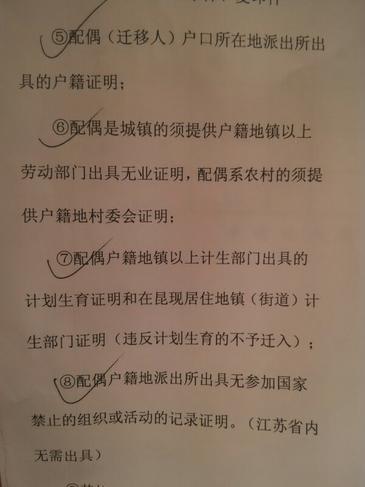 ⑤配偶（迁移人）户口所在地派出所出
具的户籍证明；
⑥配偶是城镇的须提供户籍地镇以上
劳动部门出具无业证明，配偶系农村的须提
供户籍地村委会证明；
⑦配偶户籍地镇以上计生部门出具的
计划生育证明和在昆现居住地镇（街道）计
生部门证明（违反计划生育的不予迁入）；
⑧配偶户籍地派出所出具无参加国家
禁止的组织或活动的记录证明。（江苏省内
无需出具）